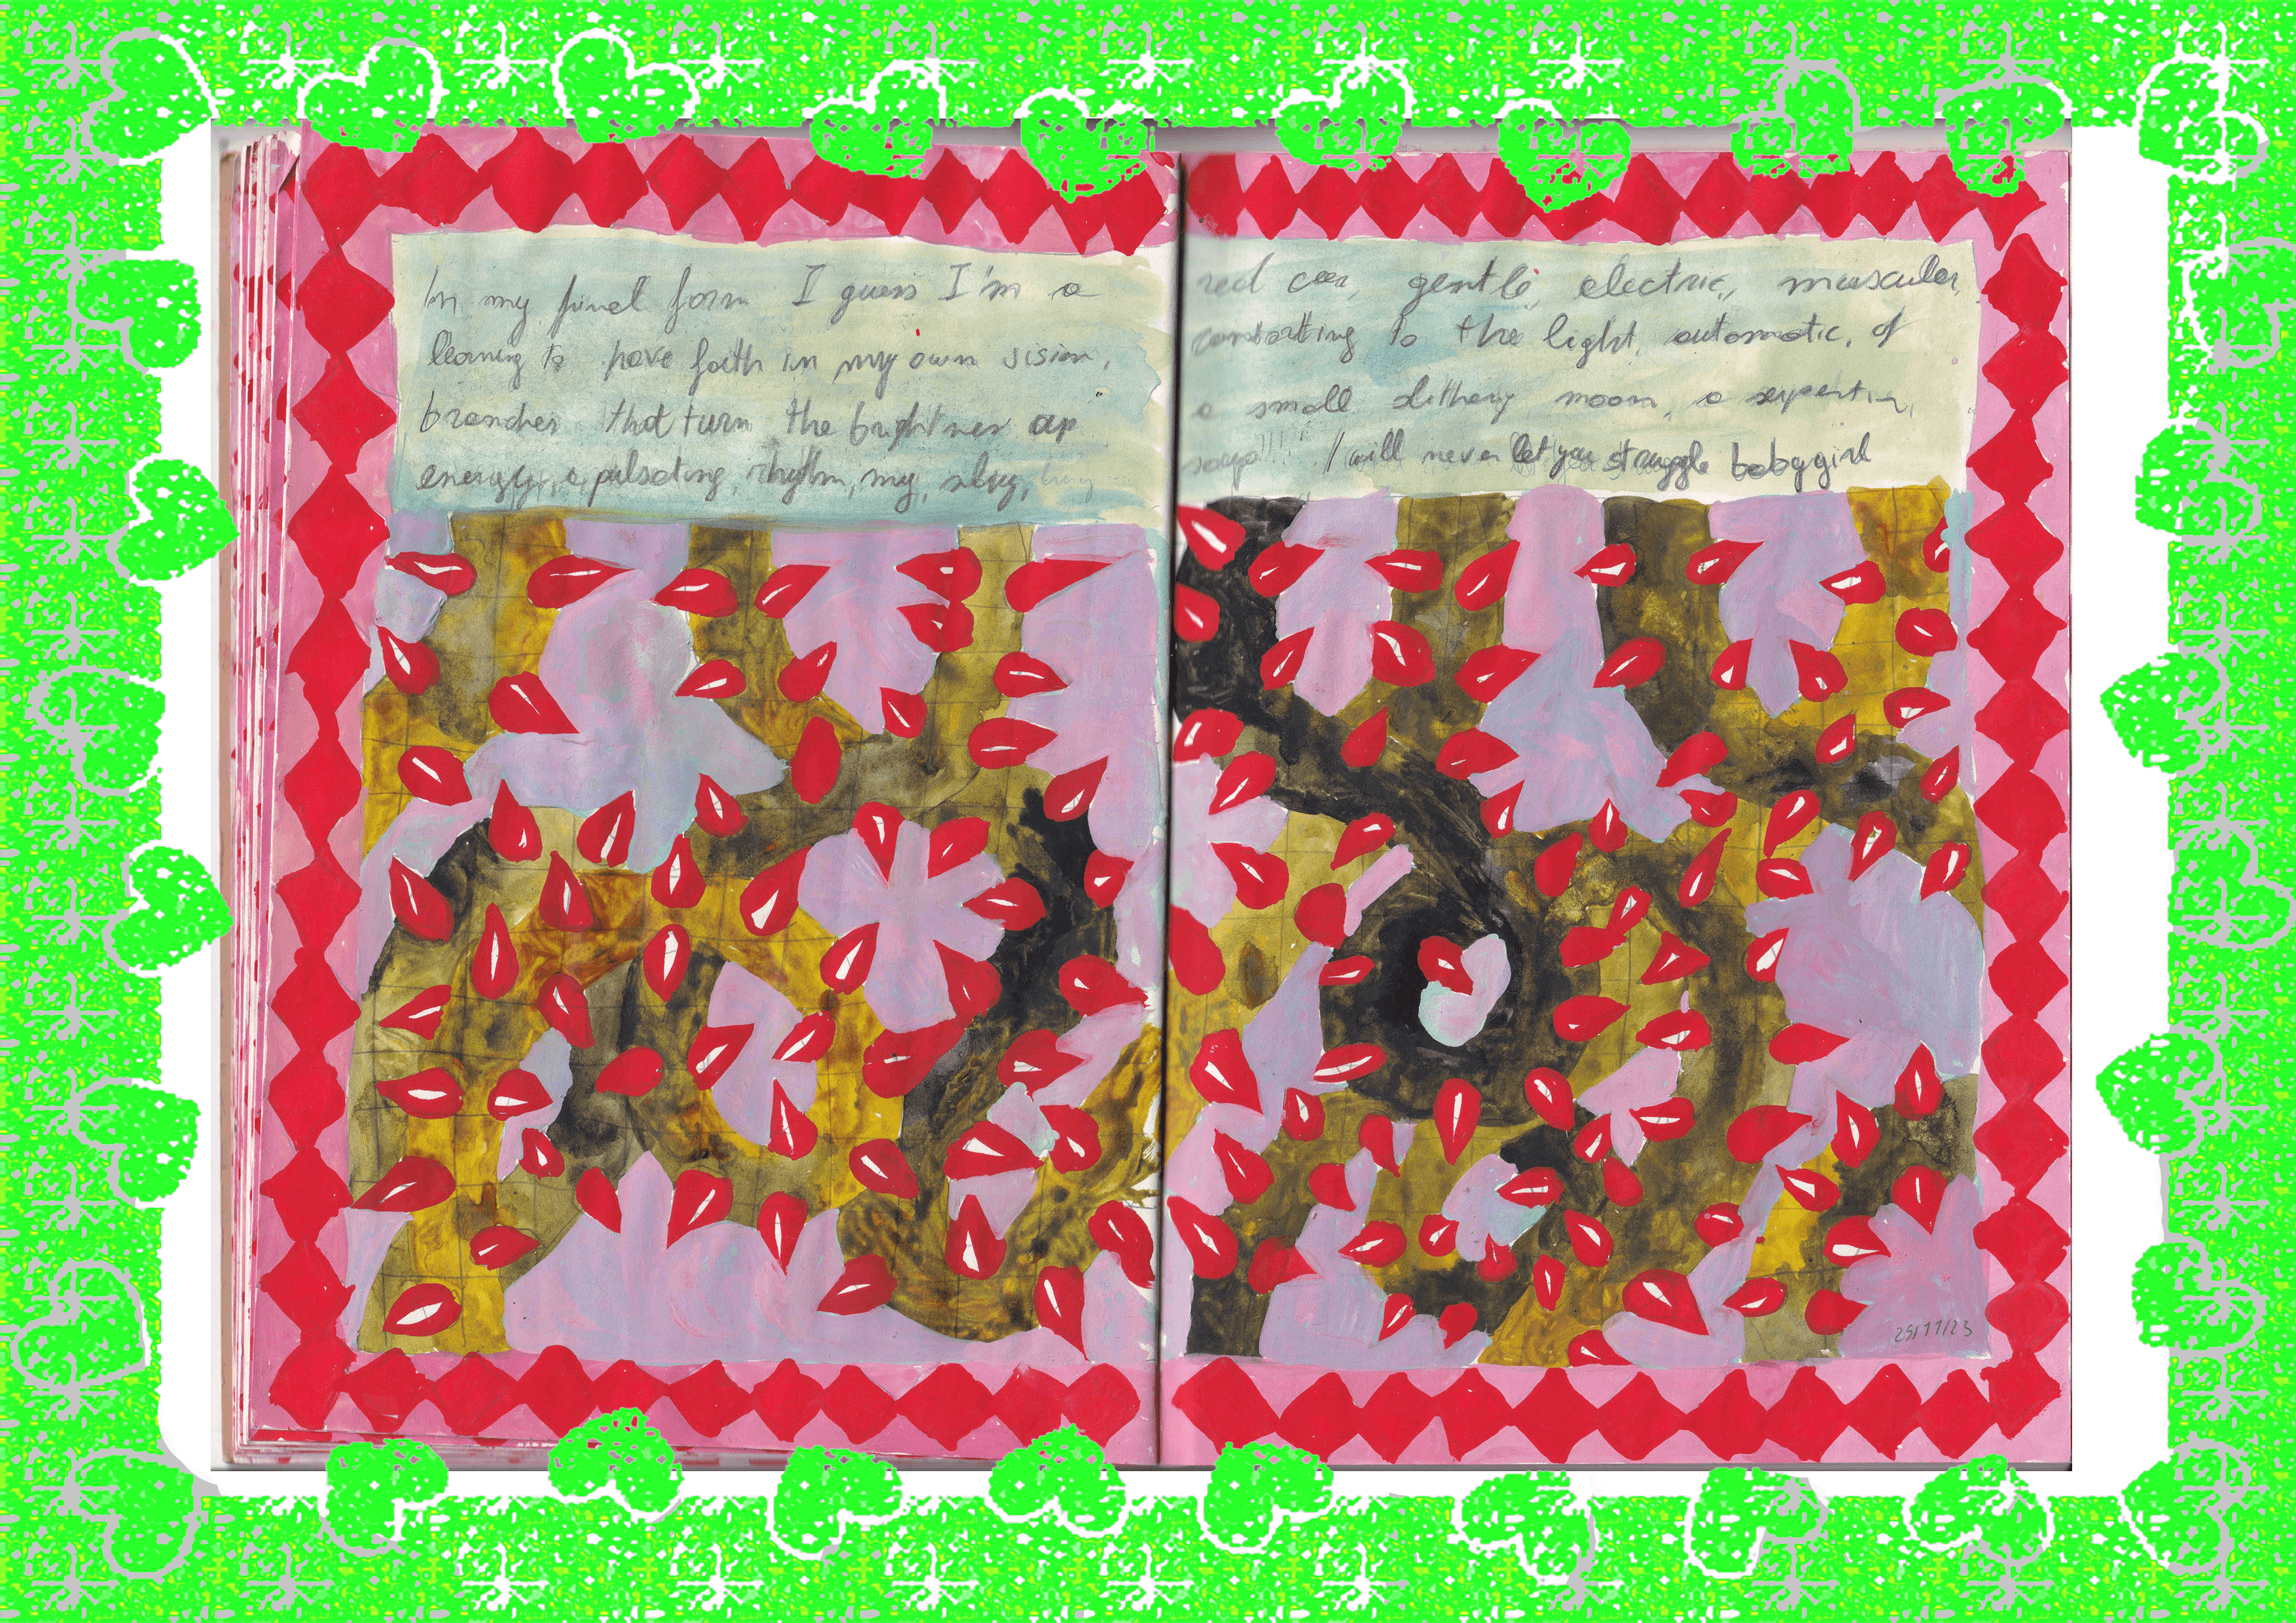 In my final form I guess I'm a
learning to have faith in my own vision,
branches that turn the brightness up
energy, a pulsating, rhythm, my,
red car, gentle, electric, muscular,
to the light, automatic, of
a small slithery moon, a
I will never let you struggle babygirl
25/11/23